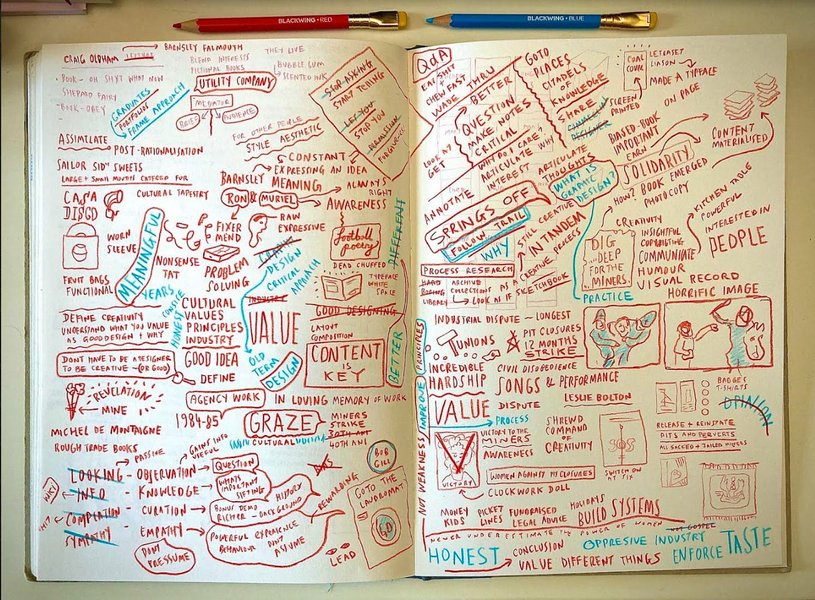 BLACKWING • RED
BLACKWING • BLUE
CRAIG OLDHAM
BARNSLEY FALMOUTH
BLEND INTERESTS
FICTIONAL BOOKS
THEY LIVE
BUBBLE GUM
SCENTED INK
- BOOK - OH SHIT WHAT NOW
SHEPARD FAIRY
- BOOK - OBEY
GRADUATES
PORTFOLIOS
FRAME APPROACH
UTILITY COMPANY
MEDIATOR
BRIEF
AUDIENCE
STOP ASKING
START TELLING
LET YOU
STOP YOU
PERMISSION
FORGIVENESS
FOR OTHER PEOPLE
STYLE AESTHETIC
ASSIMILATE
POST-RATIONALISATION
CONSTANT
EXPRESSING AN IDEA
SAILOR SID" SWEETS
LARGE + SMALL MOUTHS CATERED FOR
BARNSLEY MEANING
ALWAYS
RIGHT
CASA
DISCO
CULTURAL TAPESTRY
RON & MURIEL
AWARENESS
WORN
SLEEVE
FIXER
MEND
RAW
EXPRESSIVE
football
poetry
DIFFERENT
MEANINGFUL
NONSENSE
TAT
PROBLEM
SOLVING
GRAPHIC
DESIGN
CRITICAL
APPROACH
DEAD CHUFFED
TYPEFACE
WHITE
SPACE
FRUIT BAGS
FUNCTIONAL
YEARS
HONEST
CULTURAL
VALUES
PRINCIPLES
INDUSTRY
INDUSTRY
VALUE
GOOD DESIGNING
LAYOUT
COMPOSITION
DEFINE CREATIVITY
UNDERSTAND WHAT YOU VALUE
AS GOOD DESIGN + WHY
DON'T HAVE TO BE A DESIGNER
TO BE CREATIVE - (OR GOOD)
GOOD IDEA
DEFINE
OLD
TERM
DESIGN
CONTENT
IS
KEY
BETTER
REVELATION
MINE
AGENCY WORK
IN LOVING MEMORY OF WORK
1984-85
GRAZE
MINERS
STRIKE
40TH ANI
CULTURAL
MICHEL DE MONTAIGNE
ROUGH TRADE BOOKS
PASSIVE
GAINS INTO
USEFUL
BOB
GILL
LOOKING - OBSERVATION
QUESTION
INFO - KNOWLEDGE
WHATS
IMPORTANT
SIFTING
COMPLATION - CURATION
BONUS DEMO
RICHER - BACKGROUND
HISTORY
SYMPATHY EMPATHY
POWERFUL EXPERIENCE
BEHAVIOUR
DON'T
ASSUME
DON'T
PRESSUME
REWARDING
LEAD
GO TO THE
LAUNDROMAT
GO
Q&A
EAT SHIT
CHEW FAST
WADE
THRU
BETTER
GOTO
PLACES
CITADELS
OF
KNOWLEDGE
SHARE
COAL
LETRASET
LIAISON
MADE A TYPEFACE
ON PAGE
SCREEN
PRINTED
QUESTION
MAKE NOTES
CRITICAL
WHY DO I CARE?
ARTICULATE WHY
INTEREST
LOOK AT
GET
DESIGNER
BASED-BOOK
IMPORTANT
EARN
CONTENT
MATERIALISED
ARTICULATE
THOUGHTS
SOLIDARITY
ANNOTATE
WHAT IS
GRAPHIC
DESIGN?
HOW? BOOK EMERGED
PHOTOCOPY
SPRINGS OFF
FOLLOW TRAIL
WHY
STILL CREATIVE
IN TANDEM
CREATIVE PROCESS
CREATIVITY
INSIGHTFUL
COPYWRITING
COMMUNICATE
HUMOUR
VISUAL RECORD
KITCHEN TABLE
POWERFUL
INTERESTED IN
PEOPLE
DIG
DEEP
FOR THE
MINERS.
PROCESS RESEARCH
HARD
BORING
LIBRARY
ARCHIVE
COLLECTIONS
LOOK AS IF
SKETCHBOOK
PRACTICE
HORRIFIC IMAGE
INDUSTRIAL DISPUTE - LONGEST
UNIONS
PIT CLOSURES
12 MONTHS
STRIKE
INCREDIBLE
HARDSHIP
CIVIL DISOBEDIENCE
SONGS & PERFORMANCE
PRINCIPLES
IMPROVE
NOT WEAKNESS
VALUE
DISPUTE
LESLIE BOLTON
BADGES
T-SHIRTS
OPINION
PROCESS
VICTORY TO THE
MINERS
AWARENESS
SHREWD
COMMAND
OF
CREATIVITY
SOS
RELEASE + REINSTATE
PITS AND PERVERTS
ALL SACKED + JAILED MINERS
VICTORY
WOMEN AGAINST PIT CLOSURES
SWITCH ON
AT SIX
CLOCKWORK DOLL
MONEY
KIDS
PICKET
LINES
FUNDRAISED
LEGAL ADVICE
HOLIDAYS
BUILD SYSTEMS
NEVER UNDERESTIMATE THE POWER OF WOMEN
NOT GOSPEL
HONEST
CONCLUSION
VALUE DIFFERENT THINGS
OPPRESIVE INDUSTRY
ENFORCE TASTE